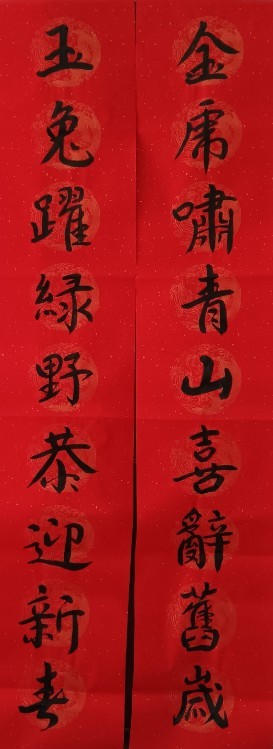 金虎嘯青山喜辭舊歲
玉兔躍綠野恭迎新春